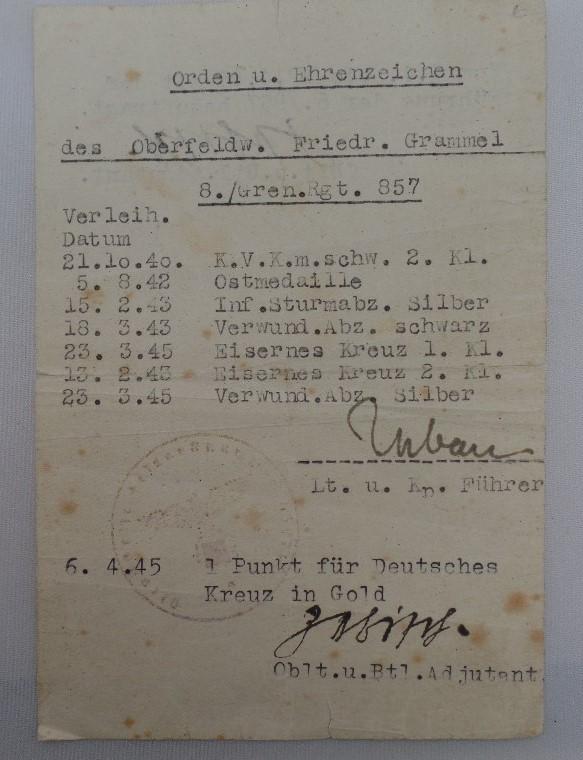 Orden u. Ehrenzeichen
des Oberfeldw. Friedr. Grammel
8./Gren.Rgt. 857
Verleih.
Datum
21.1o.4o. K.V.K.m.schw. 2. Kl.
5. 8.42 Ostmedaille
15. 2.43 Inf.Sturmabz. Silber
18. 3.43 Verwund.Abz. schwarz
23. 3.45 Eisernes Kreuz 1. Kl.
13. 2.43 Eisernes Kreuz 2. Kl.
23. 3.45 Verwund.Abz. Silber
Urban
Lt. u. Kp. Führer
6. 4.45 1 Punkt für Deutsches
Kreuz in Gold
Oblt.u.Btl.Adjutant.